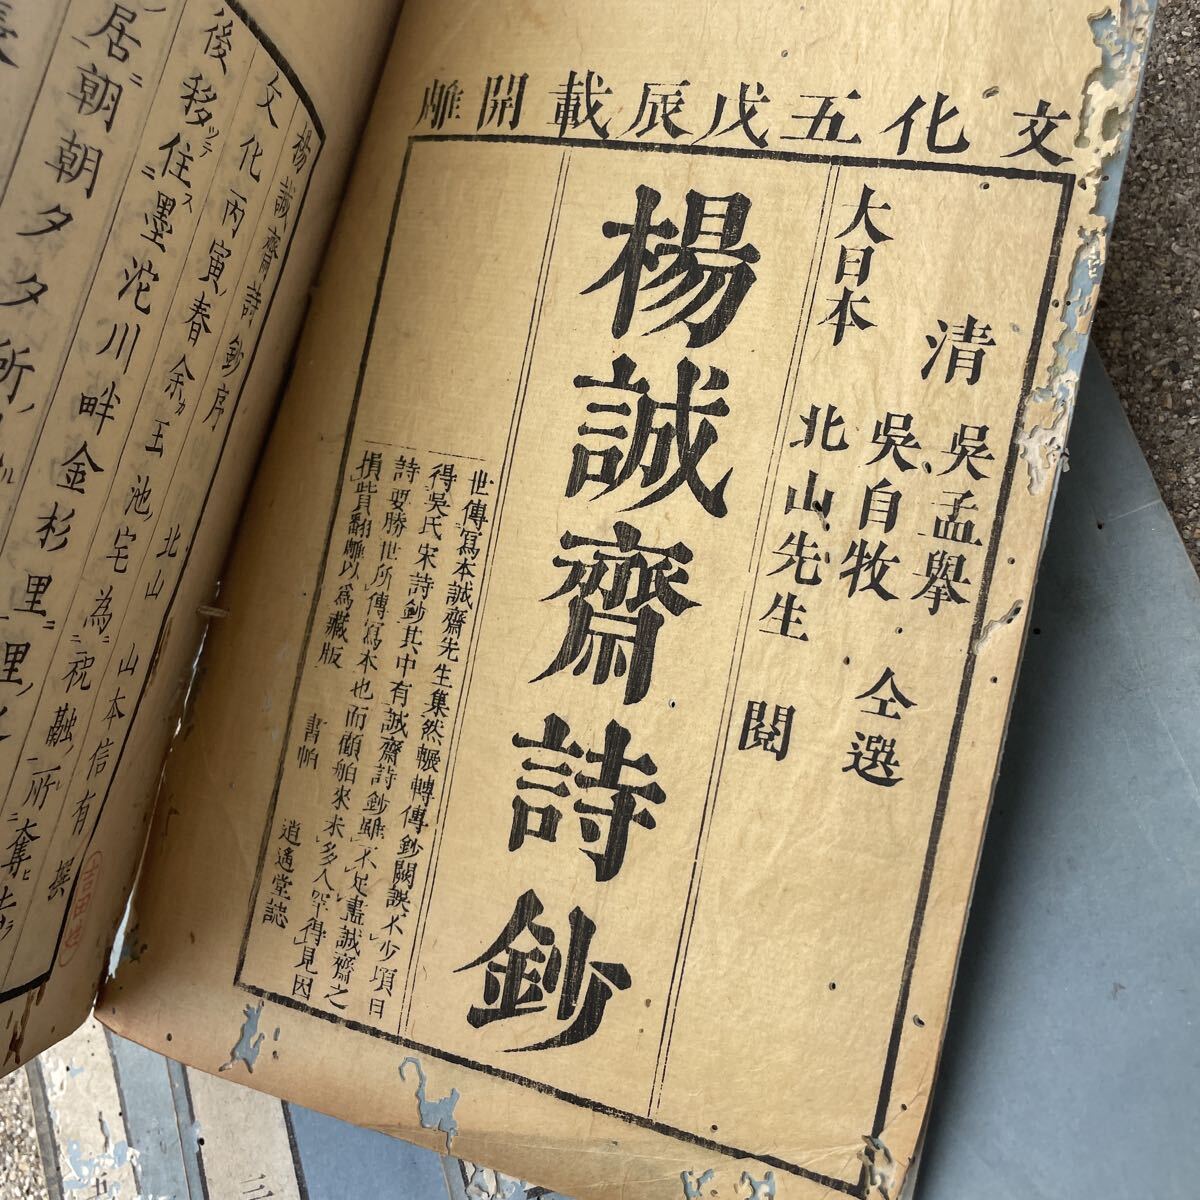 文化五戊辰載開雕
清
吳孟擧
吳自牧 仝選
大日本 北山先生 閱
楊誠齋詩鈔
世傳寫本誠齋先生集然輾轉傳鈔闕誤不少頃日
得吳氏宋詩鈔其中有誠齋詩鈔雖不足盡誠齋之
詩要勝世所傳寫本也而顧舶來未多人罕得見因
損貲翻雕以爲藏版 書帕 逍遙堂誌
楊誠齋詩鈔序
北山 山本信有 撰
文化丙寅ノ春余カ玉池ノ宅為ニ祝融ノ所ニ奪ヒ去ラ
後移ツテ住ス墨沱川畔金杉里ニ里ノ
居ニ朝朝夕夕所ノ
三
五